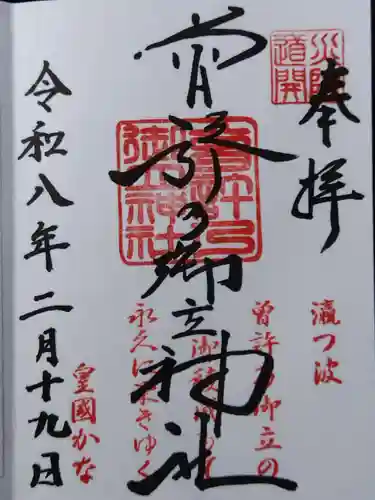 奉拝
災除
道開
曽許乃御立神社
曽許乃
御立神社
瀛つ波
曽許乃御立の
永久に さきゆく
皇國かな
令和八年二月十九日